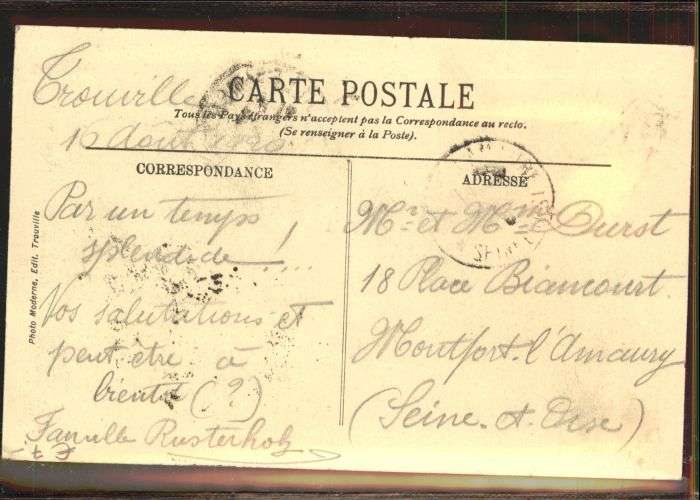 Trouville
CARTE POSTALE
Tous les Pays étrangers n'acceptent pas la Correspondance au recto.
(Se renseigner à la Poste).
16 Août
CORRESPONDANCE
Par un temps
splendide !
Vos salutations et
peut être à
bientôt (?)
Famille Rusterholz
Photo Moderne, Edit. Trouville
ADRESSE
Mr et Mme Durst
18 Place Biancourt
Montfort-l'Amaury
(Seine-et-Oise)